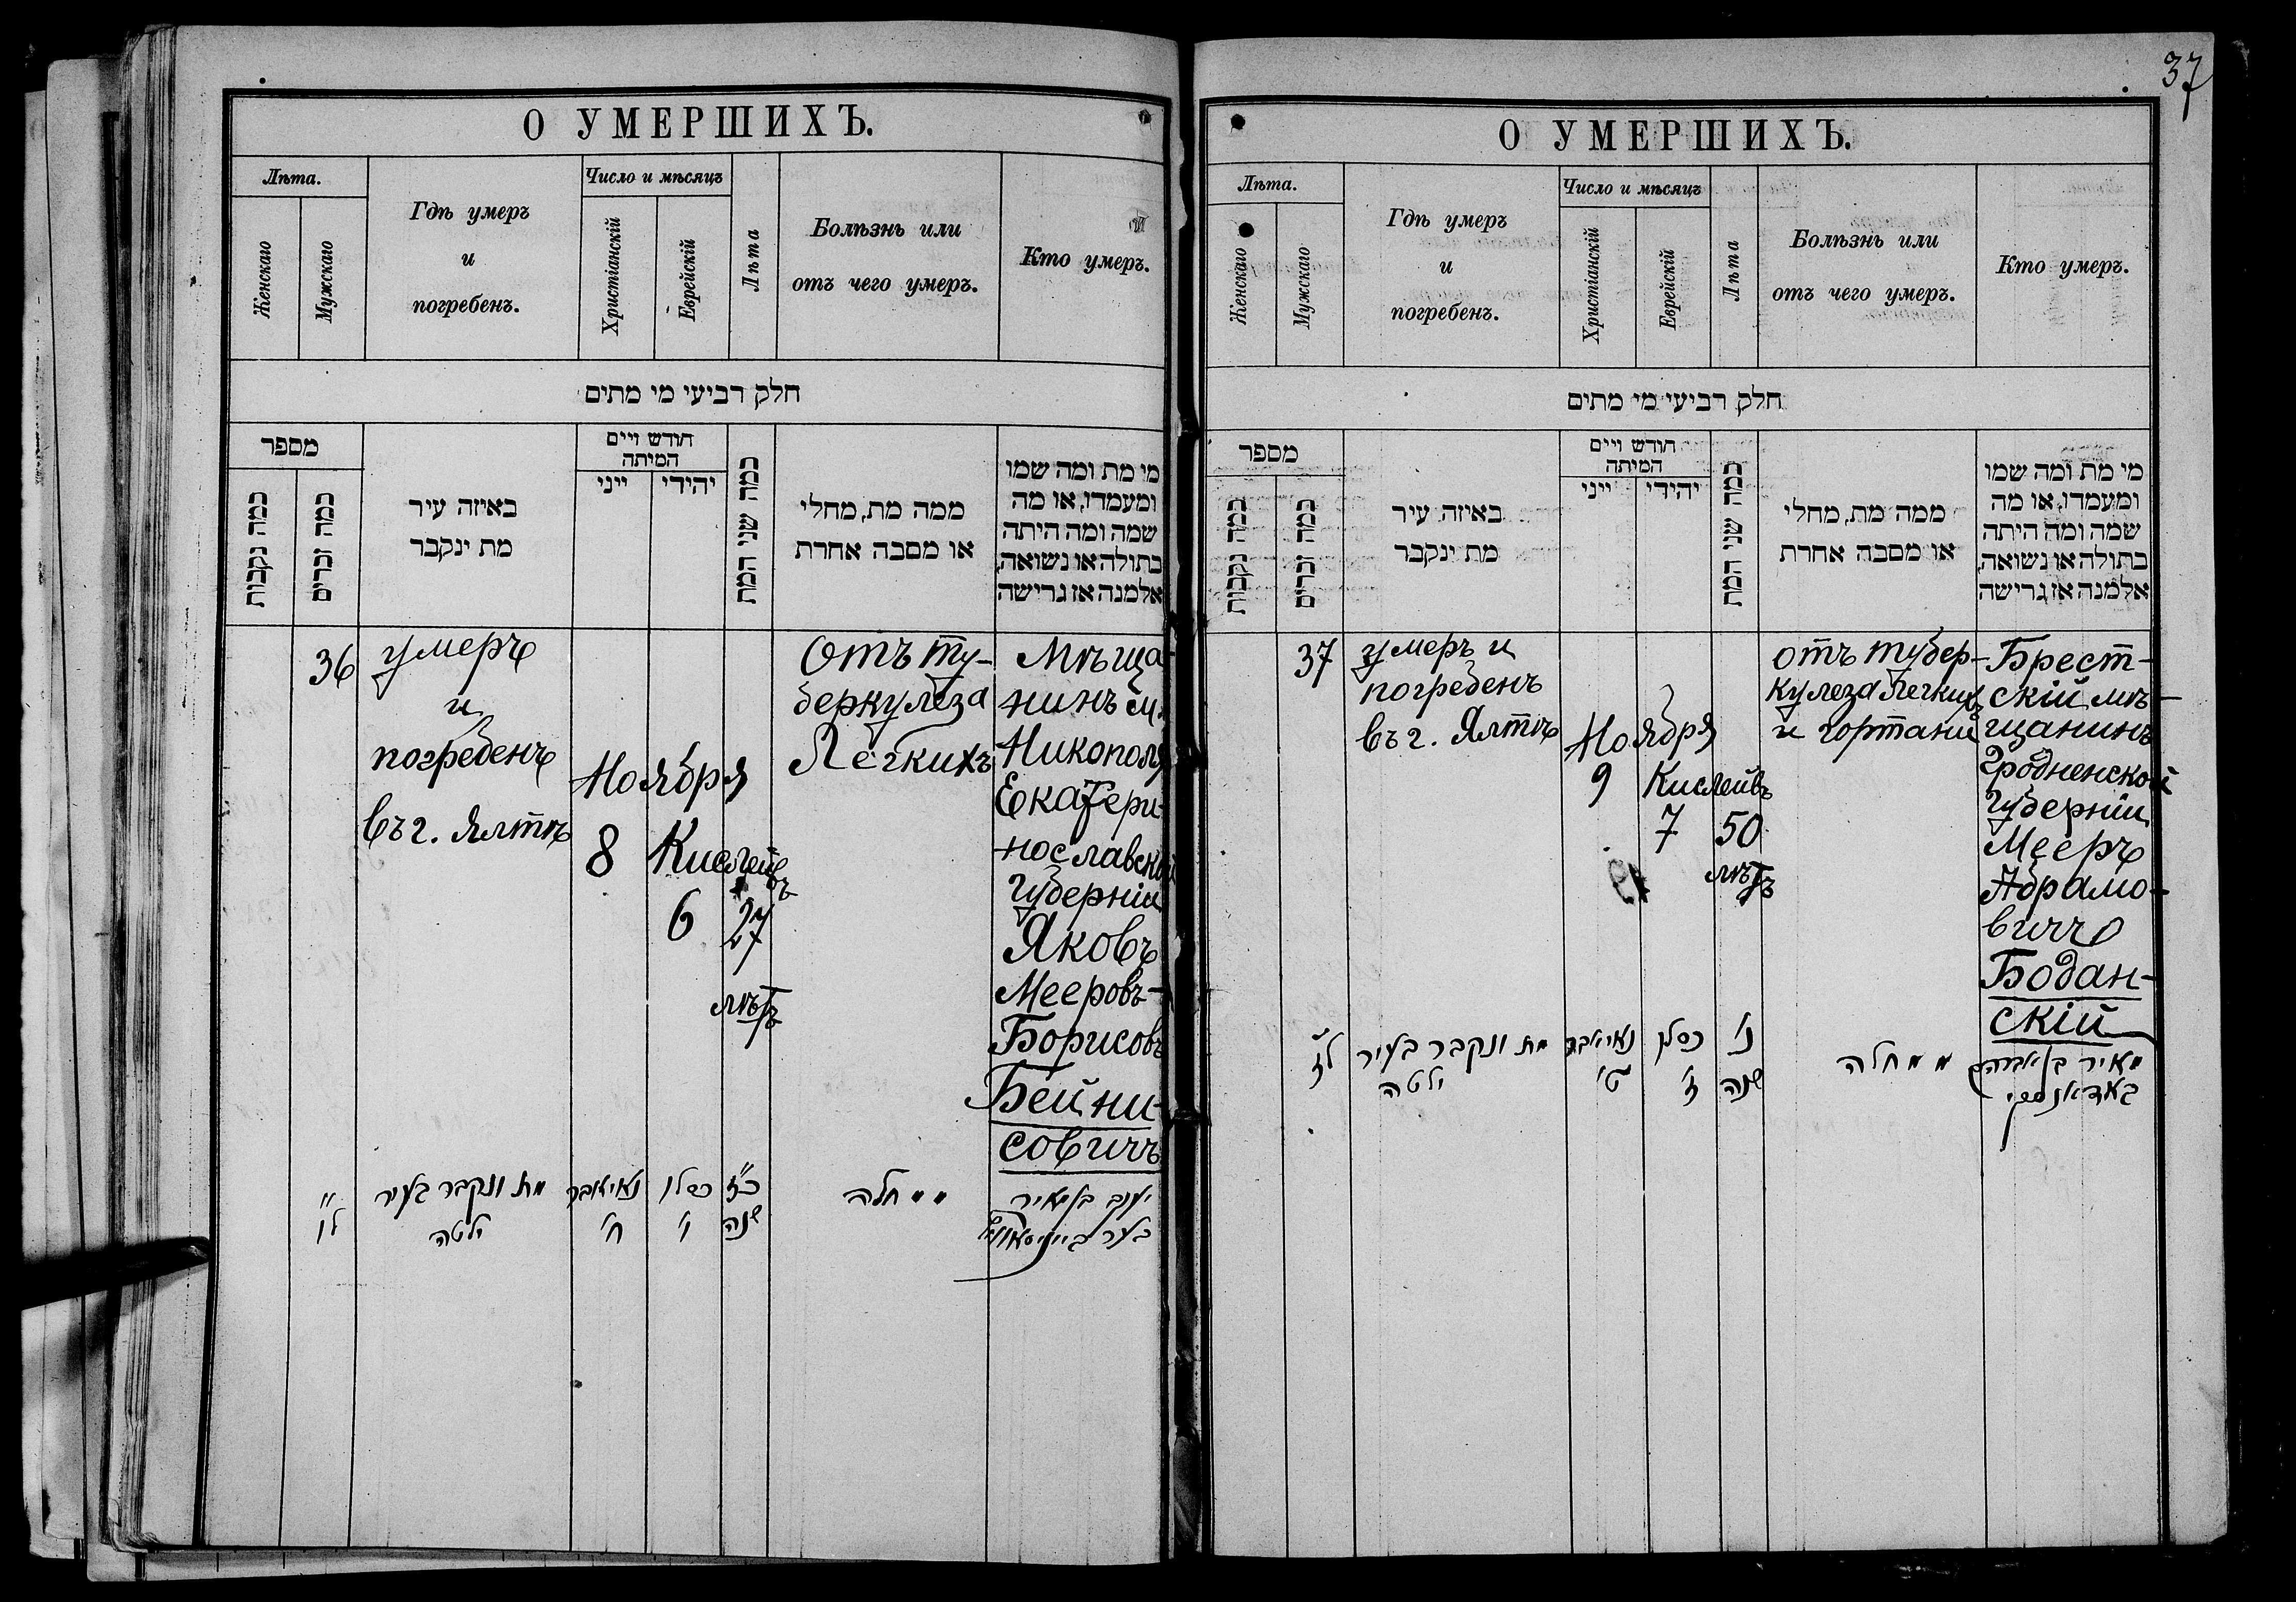 О УМЕРШИХЪ.
Лѣта.
Женскаго
Мужскаго
Гдѣ умеръ
и
погребенъ.
Число и мѣсяцъ
Христіанскій
Еврейскій
Лѣта
Болѣзнь или
отъ чего умеръ.
Кто умеръ.
חלק רביעי מי מתים
מספר
כמה נקבות
כמה זכרים
באיזה עיר
מת ינקבר
חודש ויים
המיתה
ייני
יהודי
כמה שני המת
ממה מת, מחלי
או מסבה אחרת
מי מת ומה שמו
ומעמדו, או מה
שמה ומה היתה
בתולה או נשואה,
אלמנה אז גרישה
36
умеръ
и
погребенъ
въ г. Ялтѣ
Ноября
8
Кислевъ
6
27
лѣтъ
Отъ ту-
беркулеза
Легкихъ
Мѣща-
нинъ м.
Никополя
Екатери-
нославской
Губерніи
Яковъ
Мееровъ-
Борисовъ
Бейни-
совичъ
לו
מת ונקבר בעיר
ילטה
נאיאבר
ח'
כסלו
ו'
כ"ז
שנה
מחלה
יעקב בן מאיר
בער
37
О УМЕРШИХЪ.
Лѣта.
Женскаго
Мужскаго
Гдѣ умеръ
и
погребенъ.
Число и мѣсяцъ
Христіанскій
Еврейскій
Лѣта
Болѣзнь или
отъ чего умеръ.
Кто умеръ.
חלק רביעי מי מתים
מספר
כמה נקבות
כמה זכרים
באיזה עיר
מת ינקבר
חודש ויים
המיתה
ייני
יהודי
כמה שני המת
ממה מת, מחלי
או מסבה אחרת
מי מת ומה שמו
ומעמדו, או מה
שמה ומה היתה
בתולה או נשואה,
אלמנה אז גרישה
37
умеръ и
погребенъ
въ г. Ялтѣ
Ноября
9
Кислейвъ
7
50
лѣтъ
отъ тубер-
кулеза легкихъ
и гортани
Брест-
скій мѣ-
щанинъ
Гродненской
Губерніи
Мееръ
Абрамо-
вичъ
Бодан-
скій
לז
מת ונקבר בעיר
ילטה
נאיאבר
ט'
כסלו
ז'
נ'
שנה
מחלה
מאיר בן אברהם
באדאנסקי